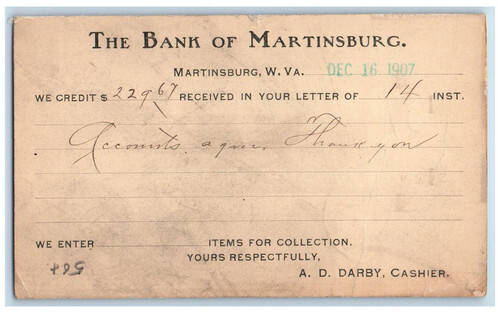 THE BANK OF MARTINSBURG.
MARTINSBURG, W. VA. DEC 16 1907
WE CREDIT $ 229 67 RECEIVED IN YOUR LETTER OF 14 INST.
Accounts agree. Thank you
WE ENTER ITEMS FOR COLLECTION.
YOURS RESPECTFULLY,
A. D. DARBY, CASHIER.